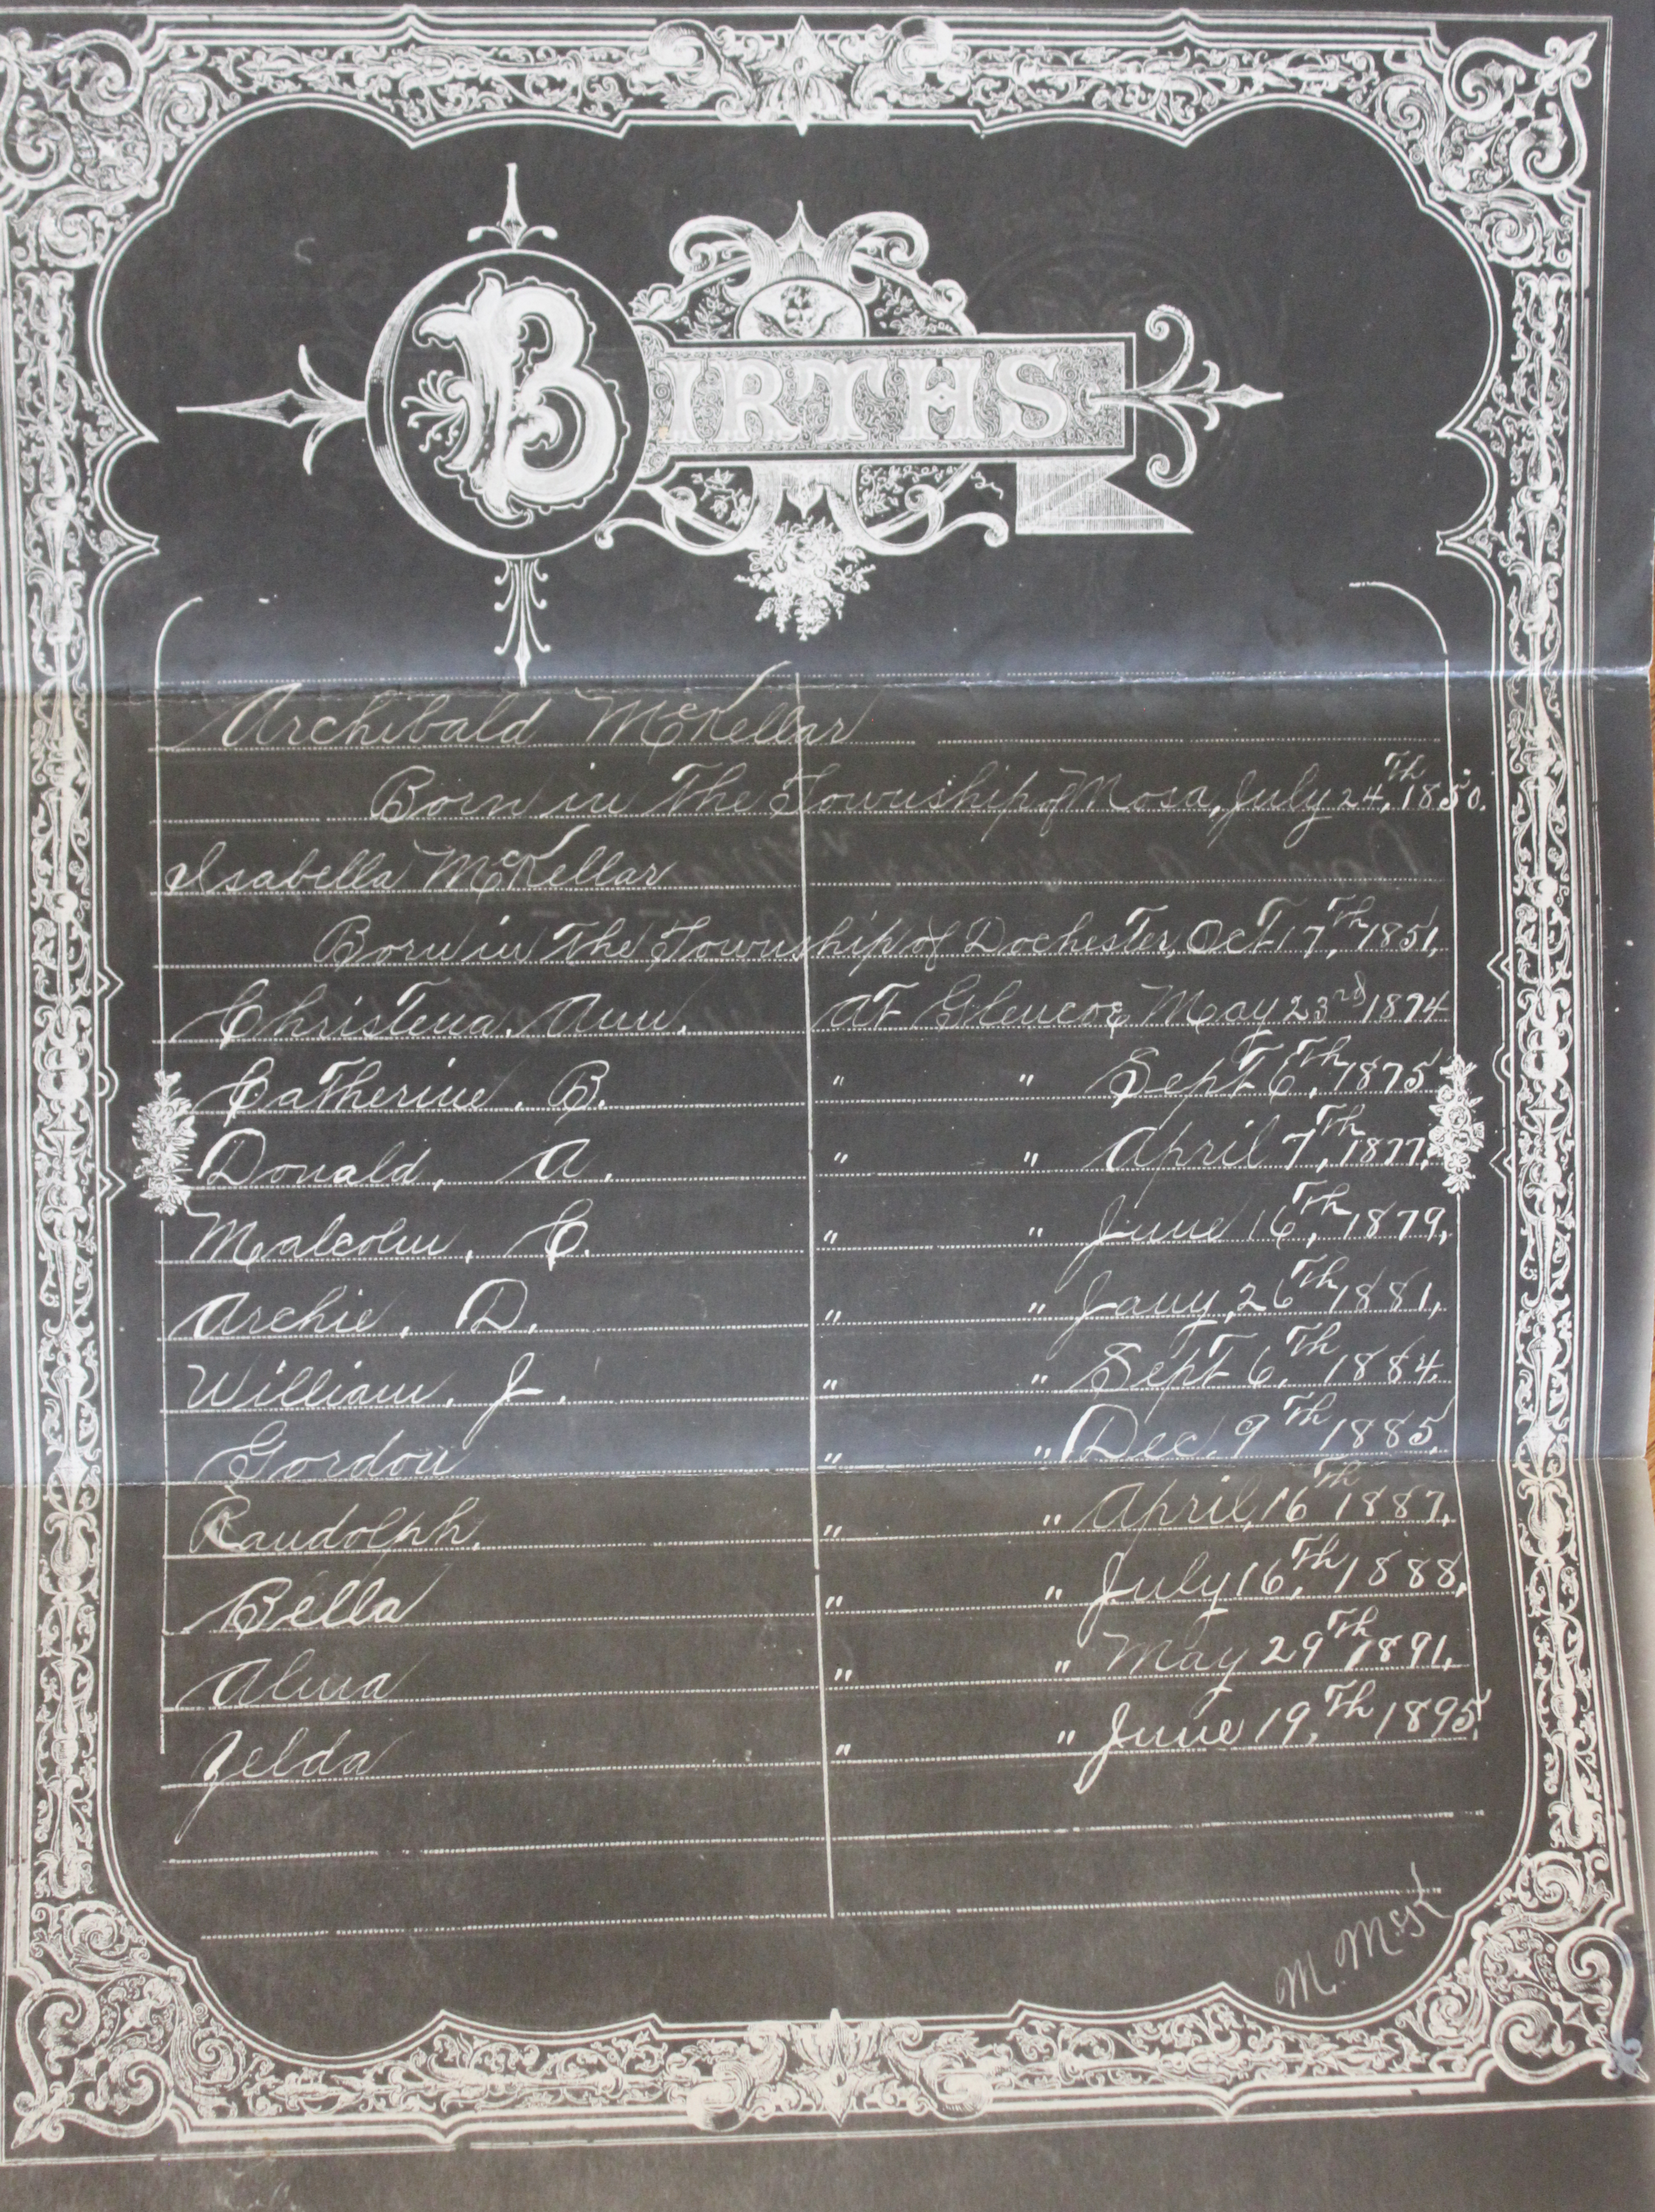 BIRTHS
Archibald McKellar
Born in The Township of Mosa, July 24, Th 1850.
Isabella McKellar
Born in The Township of Dochester, Oct 17, Th 1851,
Christena. Ann. at Glencoe May 23rd 1874
Catherine. B. " " Sept 6, Th 1875
Donald, A. " " April 7, Th 1877,
Malcolm, C. " " June 16, Th 1879,
Archie, D. " " Jany, 26 Th 1881,
William, J. " " Sept 6, Th 1884,
Gordon " " Dec, 9 Th 1885,
Randolph, " " April, 16 Th 1887,
Bella " " July 16, Th 1888,
Alma " " May 29 Th 1891,
Zelda " " June 19, Th 1895,
M. McK